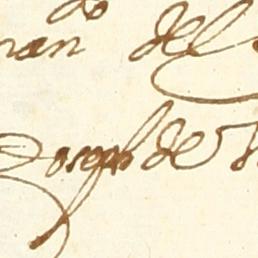 do
nan del
Joseph de